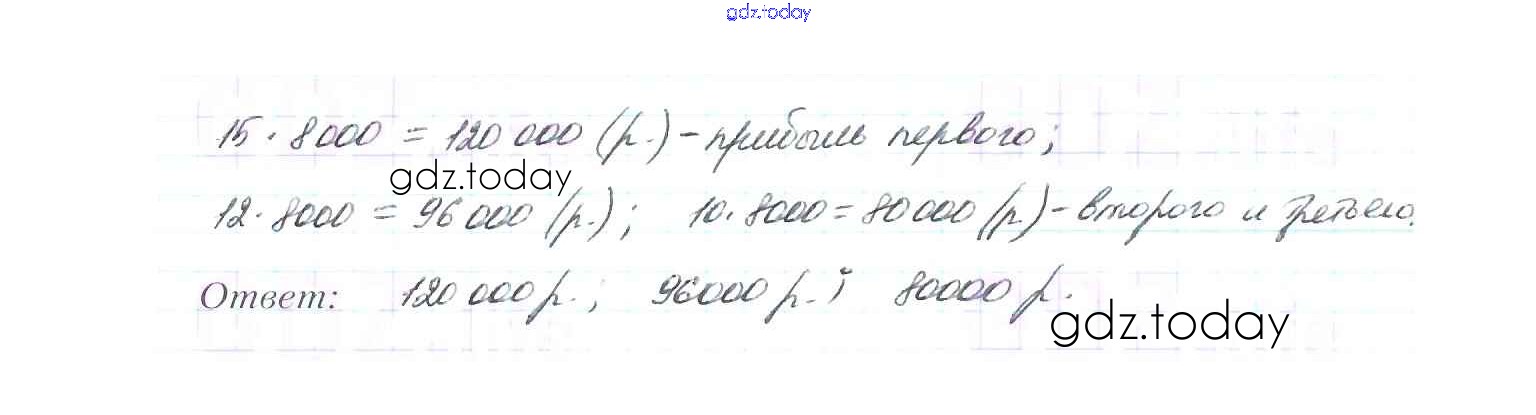 gdz.today
15 · 8000 = 120 000 (р.) - прибыль первого;
gdz.today
12 · 8000 = 96 000 (р.); 10 · 8000 = 80 000 (р.) - второго и третьего.
Ответ: 120 000 р.; 96000 р.; 80000 р.
gdz.today